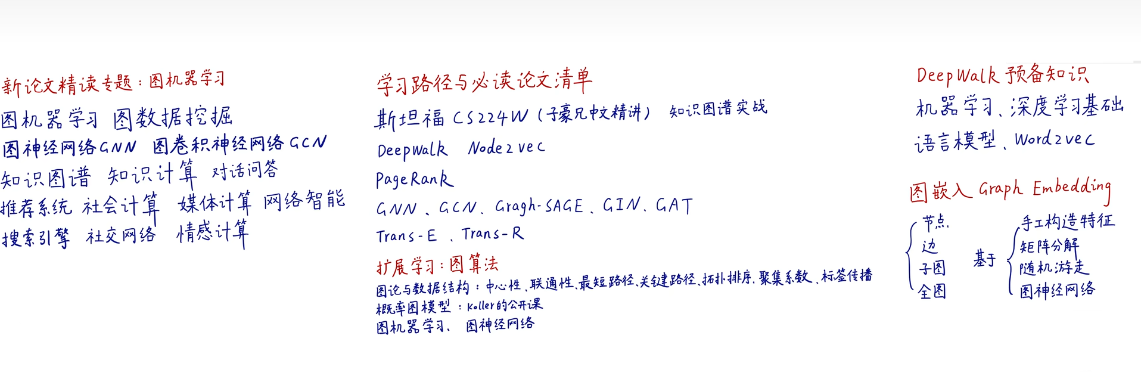 新论文精读专题：图机器学习
图机器学习 图数据挖掘
图神经网络GNN 图卷积神经网络GCN
知识图谱 知识计算 对话问答
推荐系统 社会计算 媒体计算 网络智能
搜索引擎 社交网络 情感计算
学习路径与必读论文清单
斯坦福 CS224W（子豪兄中文精讲） 知识图谱实战
Deepwalk Node2vec
PageRank
GNN、GCN、Gragh-SAGE、GIN、GAT
Trans-E、Trans-R
扩展学习：图算法
图论与数据结构：中心性、联通性、最短路径、关键路径、拓扑排序、聚集系数、标签传播
概率图模型：Koller的公开课
图机器学习、图神经网络
DeepWalk 预备知识
机器学习、深度学习基础
语言模型、Word2vec
图嵌入 Graph Embedding
节点
边
子图
全图
基于
手工构造特征
矩阵分解
随机游走
图神经网络